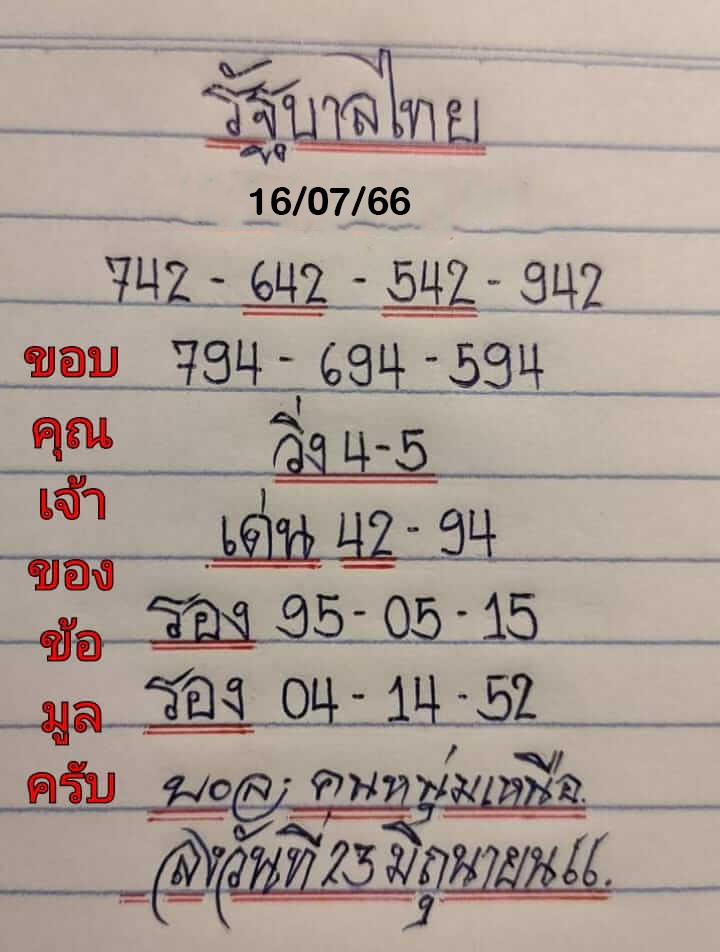 รัฐบาลไทย
16/07/66
742 - 642 - 542 - 942
794 - 694 - 594
วิ่ง 4-5
เด่น 42 - 94
รอง 95 - 05 - 15
รอง 04 - 14 - 52
คนหนุ่มเหนือ.
วันที่ 23 มิถุนายน 66.
ขอบ
คุณ
เจ้า
ของ
ข้อ
มูล
ครับ